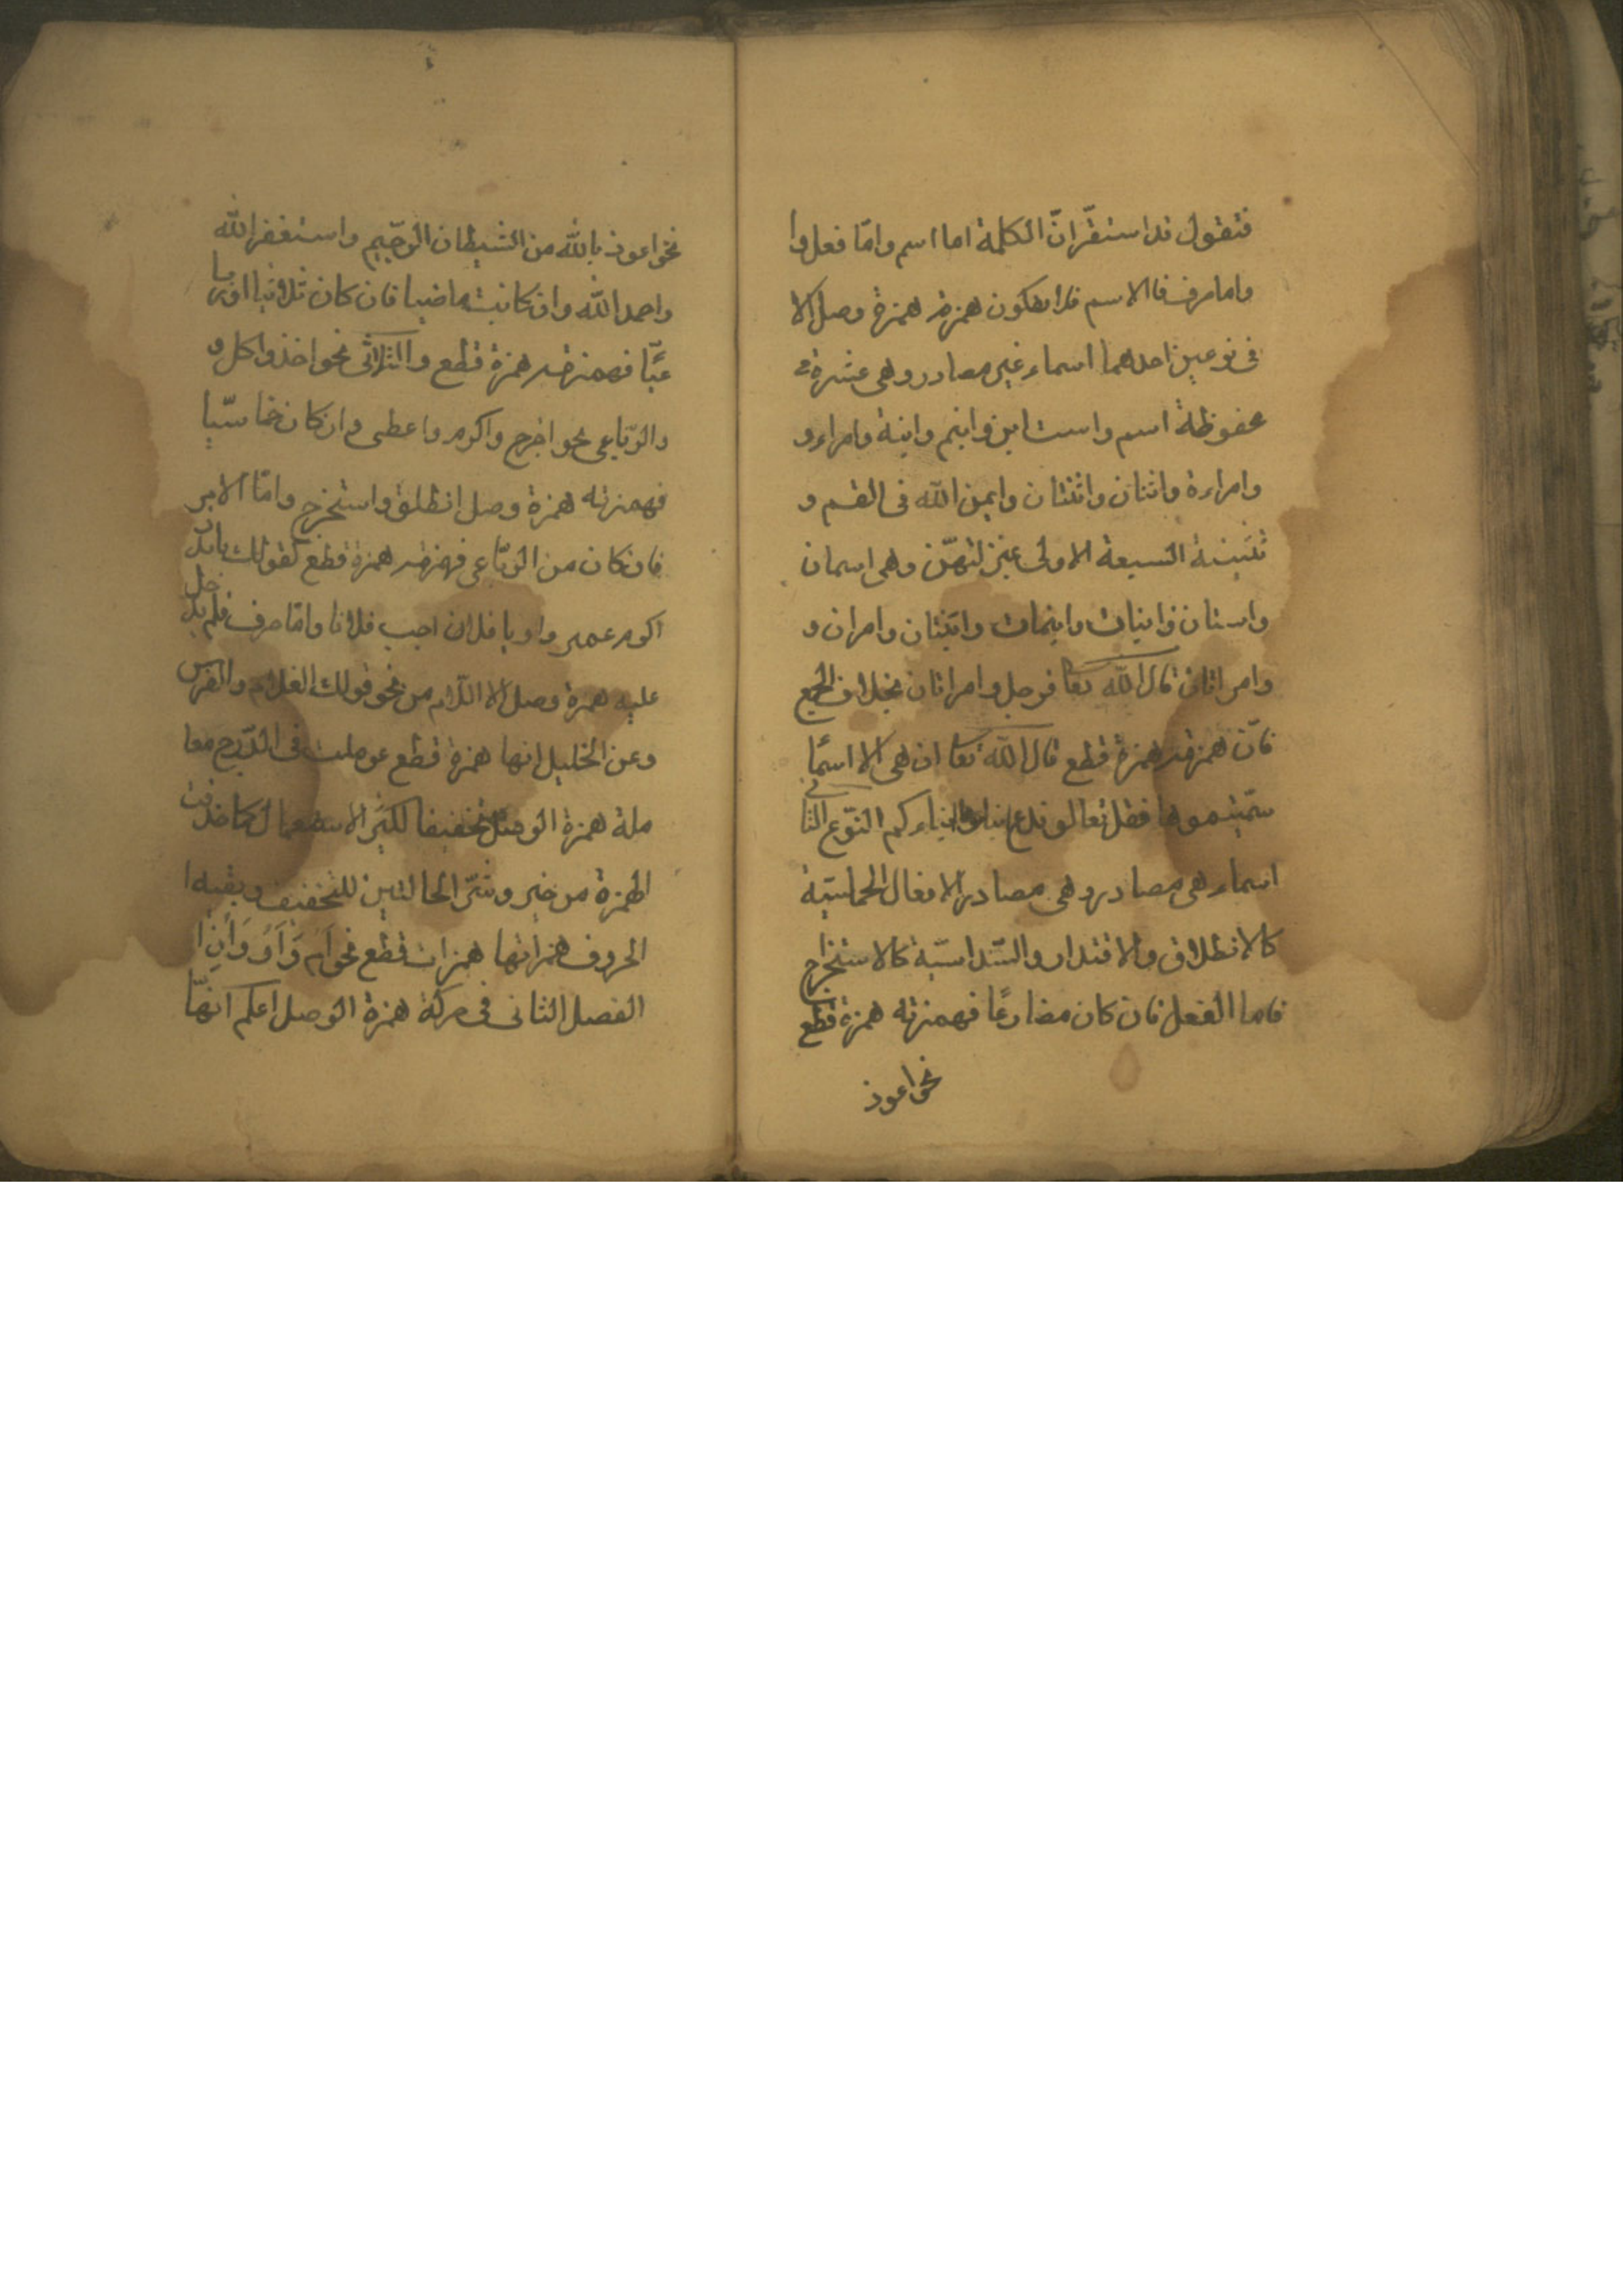 فتقول قد استقر ان الكلمة اما اسم واما فعل وا
واما حرف فالاسم فلا يكون همزته همزة وصل الا
فى نوعين احدهما اسماء غير مصادر وهى عشرة
محفوظة اسم واست ابن وابنم وابنة وامراء و
وامراءة واثنان واثنتان وايمن الله فى القسم و
تثنية السبعة الاولى بمنزلتهن وهى اسمان
واستان وابنان وابنمان وابنتان وامران و
وامراتان قال الله تعا فرجل وامراتان بخلاف الجمع
فان همزته همزة قطع قال الله تعا ان هى الا اسما
سميتموها فقل تعالو ندع ابناءنا وابناءكم النوع الثانى
اسماء هى مصادر وهى مصادر الافعال الخماسية
كالانطلاق والاقتدار والسداسية كالاستخراج
فاما الفعل فان كان مضارعا فهمزته همزة قطع
نحو اعوذ
نحو اعوذ بالله من الشيطان الرجيم واستغفر الله
واحمد الله وان كانت ماضيا فان كان ثلاثيا اوربا
عيا فهمزته همزة قطع والثلاثى نحو اخذ واكل و
والرباعى نحو اخرج واكرم واعطى وان كان خماسيا
فهمزته همزة وصل انطلق واستخرج واما الامر
فان كان من الرباعى فهمزته همزة قطع كقولك يا
اكرم عمر واويا فلان اجب فلانا واما حرف فلم يدخل
عليه همزة وصل الا اللام من نحو قولك الغلام والفرس
وعن الخليل انها همزة قطع عوملت فى الدرج معا
ملة همزة الوصل تخفيفا لكثر الاستعمال كما حذفت
الهمزة من خير وشر الحالتين للتخفيف وبقيه ا
الحروف همزاتها همزات قطع نحو ام وَاَو وَاَن ا
الفصل الثانى فى حركة همزة الوصل اعلم انها